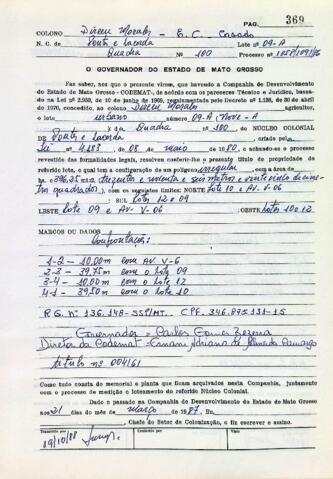 PAG. 369
COLONO Dirceu Morales - E.C. Casado
N. C. de Pontes e Lacerda Lote nº 09-A
Quadra Nº 100 Processo nº
O GOVERNADOR DO ESTADO DE MATO GROSSO
Faz saber, aos que o presente virem, que havendo a Companhia de Desenvolvimento
do Estado de Mato Grosso -CODEMAT-, de acôrdo com os pareceres Técnico e Jurídico, baseados
na Lei nº 2.938, de 10 de junho de 1969, regulamentada pelo Decreto nº 1.138, de 30 de abril
de 1970, concedido, ao colono Dirceu Morales o
lote urbano agricultor, número 09-A - Nove - A
x da Quadra nº 100 do NÚCLEO COLONIAL
DE Pontes e Lacerda
Lei nº 4.183, de 08 de maio 1980, e achando-se o processo
revestido das formalidades legais, resolvem conferir-lhe o presente título de propriedade do
referido lote, o qual tem a configuração de um polígono irregular com a área de
396,25 mt2 (trezentos e noventa e seis metros e vinte cinco centímetros
quadrados), com os seguintes limites: NORTE Lote 10 e AV. V-06
SUL Lote 12 e 09
LESTE Lote 09 e AV-V-06 OESTE Lotes 10 e 12
MARCOS OU DADOS
Confrontações:
1-2 - 10,00m com AV. V-6
2-3 - 39,75m com o Lote 09
3-4 - 10,00m com o Lote 12
4-1 - 39,50m com o Lote 10
R.G. nº 136.148-SSP/MT. CPF. 346.895.131-15
Governador - Carlos Gomes Bezerra
Diretor da Codemat - Ernani Adriano de Almeida Camargo
título nº 004161
Como tudo consta do memorial e planta que ficam arquivados nesta Companhia, juntamente
com o processo de medição e loteamento do referido Núcleo Colonial.
Dado e passado na Companhia de Desenvolvimento do Estado de Mato Grosso
aos 31 dias do mês de março de 1987. Eu,
, Chefe do Setor de Colonização, o fiz escrever e assino.
Transcrito por Conferido por Visto
09/10/88